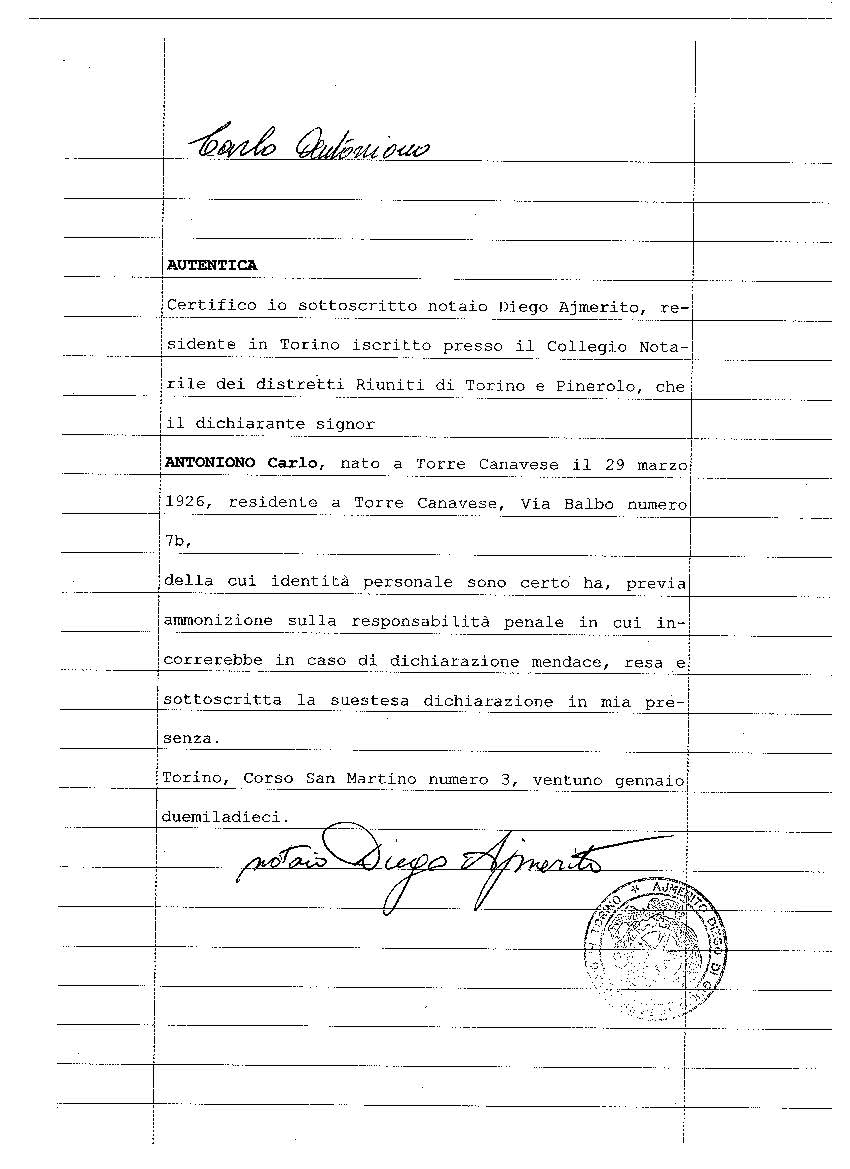 Carlo Antoniono
AUTENTICA
Certifico io sottoscritto notaio Diego Ajmerito, re-
sidente in Torino iscritto presso il Collegio Nota-
rile dei distretti Riuniti di Torino e Pinerolo, che
il dichiarante signor
ANTONIONO Carlo, nato a Torre Canavese il 29 marzo
1926, residente a Torre Canavese, Via Balbo numero
7b,
della cui identità personale sono certo ha, previa
ammonizione sulla responsabilità penale in cui in-
correrebbe in caso di dichiarazione mendace, resa e
sottoscritta la suestesa dichiarazione in mia pre-
senza.
Torino, Corso San Martino numero 3, ventuno gennaio
duemiladieci.
notaio Diego Ajmerito
TORINO * AJMERITO DIEGO DI